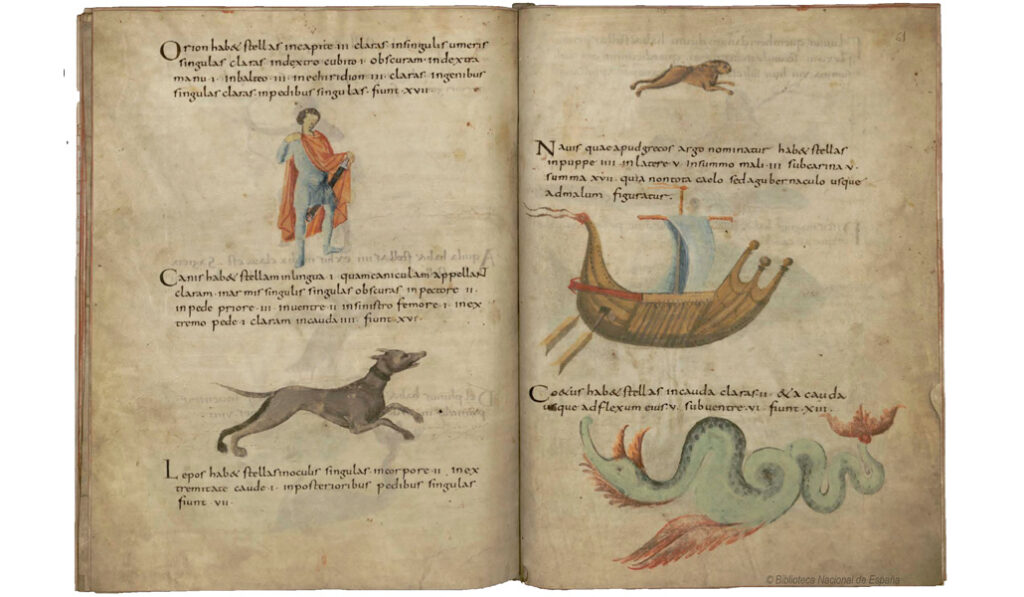 Orion hab& stellas incapite·iii· claras· insingulis umeris
singulas claras· indextro cubito·i· obscuram· indextra
manu·i· inbalteo·iii· inechiridion·iii· claras· ingenibus
singulas claras· inpedibus singulas· fiunt·xvii·
Canis hab& stellam inlingua·i· quamcaniculam appellant
claram· inarmis singulis singulas obscuras· inpectore·ii·
inpede priore·iii· inuentre·ii· insinistro femore·i· inex
tremo pede·i· claram incauda·iiii· fiunt·xvi·
Lepos hab& stellas inoculis singulas· incorpore·ii· inex
tremitate caude·i· inposterioribus pedibus singulas
fiunt·vii·
61
Nauis quae apud grecos argo nominatur hab& stellas
inpuppe·iiii· inlatere·v· insummo mali·iii· subcarina·v·
summa·xvii· quia nontota caelo sedagubernaculo usque
admalum figuratur·
Co&us hab& stellas incauda claras·ii· &a cauda
usque adflexum eius·v· subuentre·vi· fiunt·xiii·
© Biblioteca Nacional de España